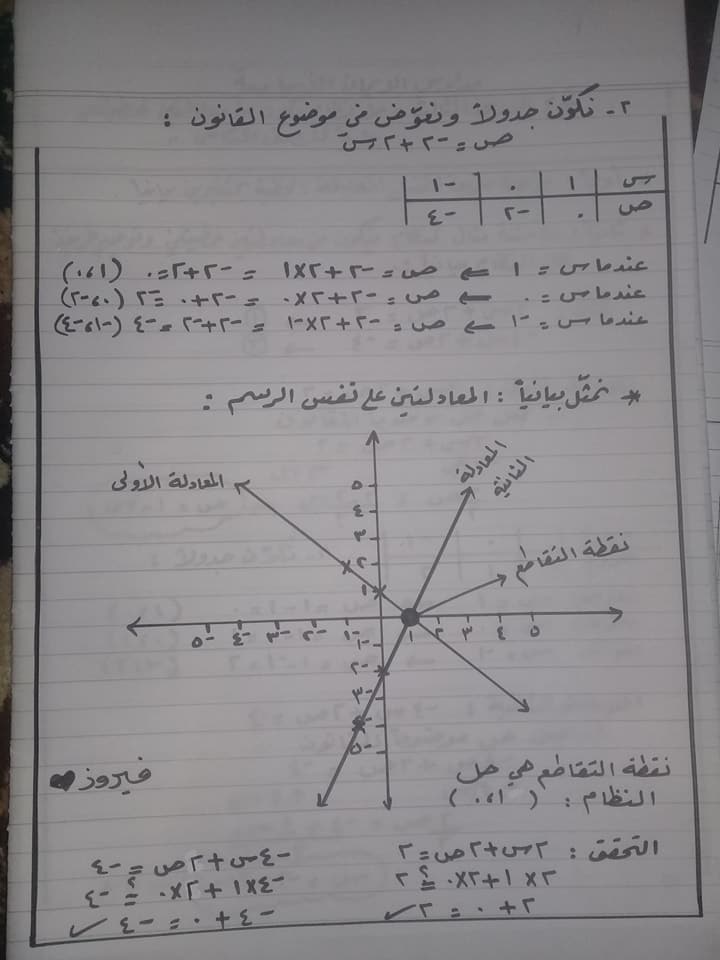 ٢- نكوّن جدولاً ونعوّض في موضوع القانون :
ص = -٢ + ٢س
س | ١ | ٠ | -١
ص | ٠ | -٢ | -٤
عندما س = ١ ⇐ ص = -٢ + ٢×١ = -٢+٢=٠ (٠،١)
عندما س = ٠ ⇐ ص = -٢ + ٢×٠ = -٢+٠ = -٢ (٠،-٢)
عندما س = -١ ⇐ ص = -٢ + ٢×-١ = -٢+-٢ = -٤ (-١،-٤)
* نمثّل بيانياً : المعادلتين على نفس الرسم :
المعادلة الأولى
المعادلة الثانية
نقطة التقاطع
٥
٤
٣
٢
١
-٥ -٤ -٣ -٢ -١ ١ ٢ ٣ ٤ ٥
-١
-٢
-٣
-٤
-٥
نقطة التقاطع هي حل
النظام : (٠،١)
فيروز
التحقق : ٢س + ٢ص = ٢
٢×١ + ٢×٠ =؟ ٢
٢ + ٠ = ٢ ✓
-٤س + ٢ص = -٤
-٤×١ + ٢×٠ =؟ -٤
-٤ + ٠ = -٤ ✓